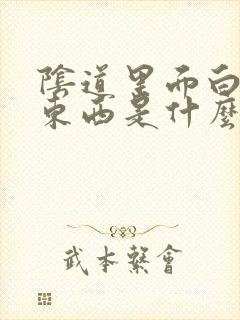 陰道里面白
東西是什麼
武本繫會